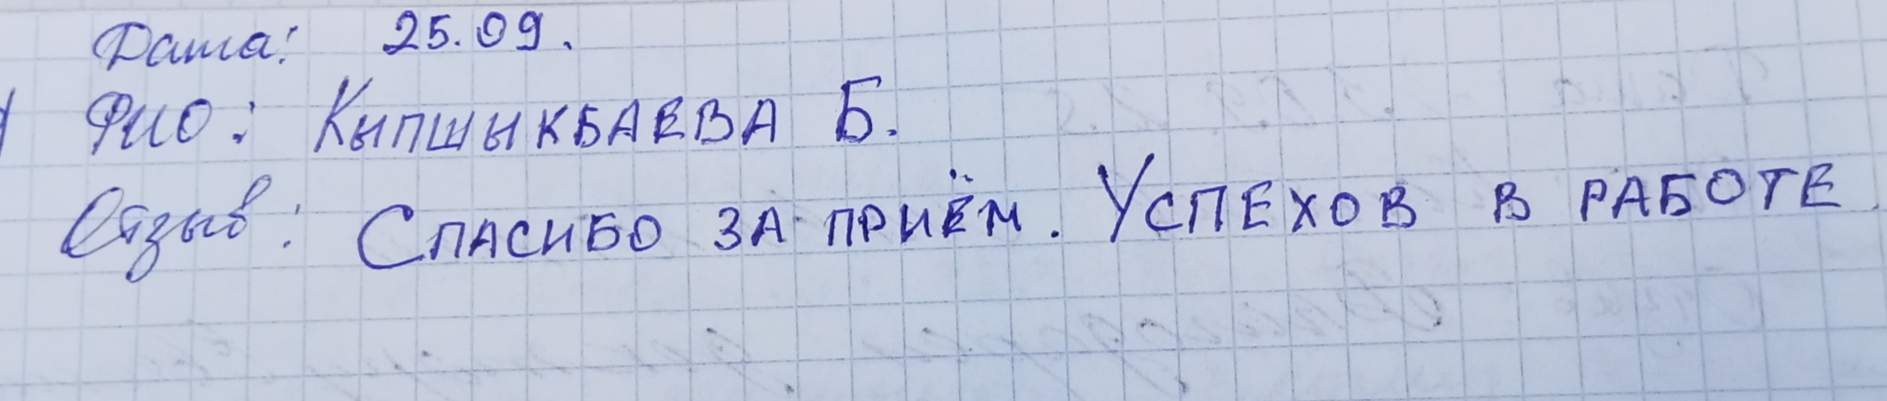 Дата: 25.09.
ФИО: Кыпшыкбаева Б.
Отзыв: Спасибо за приём. Успехов в работе